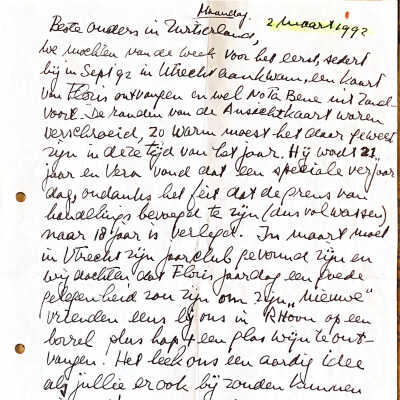 Maandag 2 maart 1992
Beste ouders in Zwitserland,
we mochten van de week voor het eerst, sedert
hij in Sept 92 in Utrecht aankwam, een kaart
van Floris ontvangen en wel Nota Bene uit Zand-
voort. De randen van de Ansichtkaart waren
verschroeid, zo warm moest het daar geweest
zijn in deze tijd van het jaar. Hij wordt 21
jaar en Vera vond dat een speciale verjaar
dag, ondanks het feit dat de grens van
handelings bevoegd te zijn (dus volwassen)
naar 18 jaar is verlegd. In maart moet
in Utrecht zijn jaarclub gevormd zijn en
wij dachten dat Floris jaardag een goede
gelegenheid zou zijn om zijn „nieuwe"
vrienden eens bij ons in R'Hoon op een
borrel plus hap + een glas wijn te ont-
vangen. Het leek ons een aardig idee
als jullie er ook bij zouden kunnen